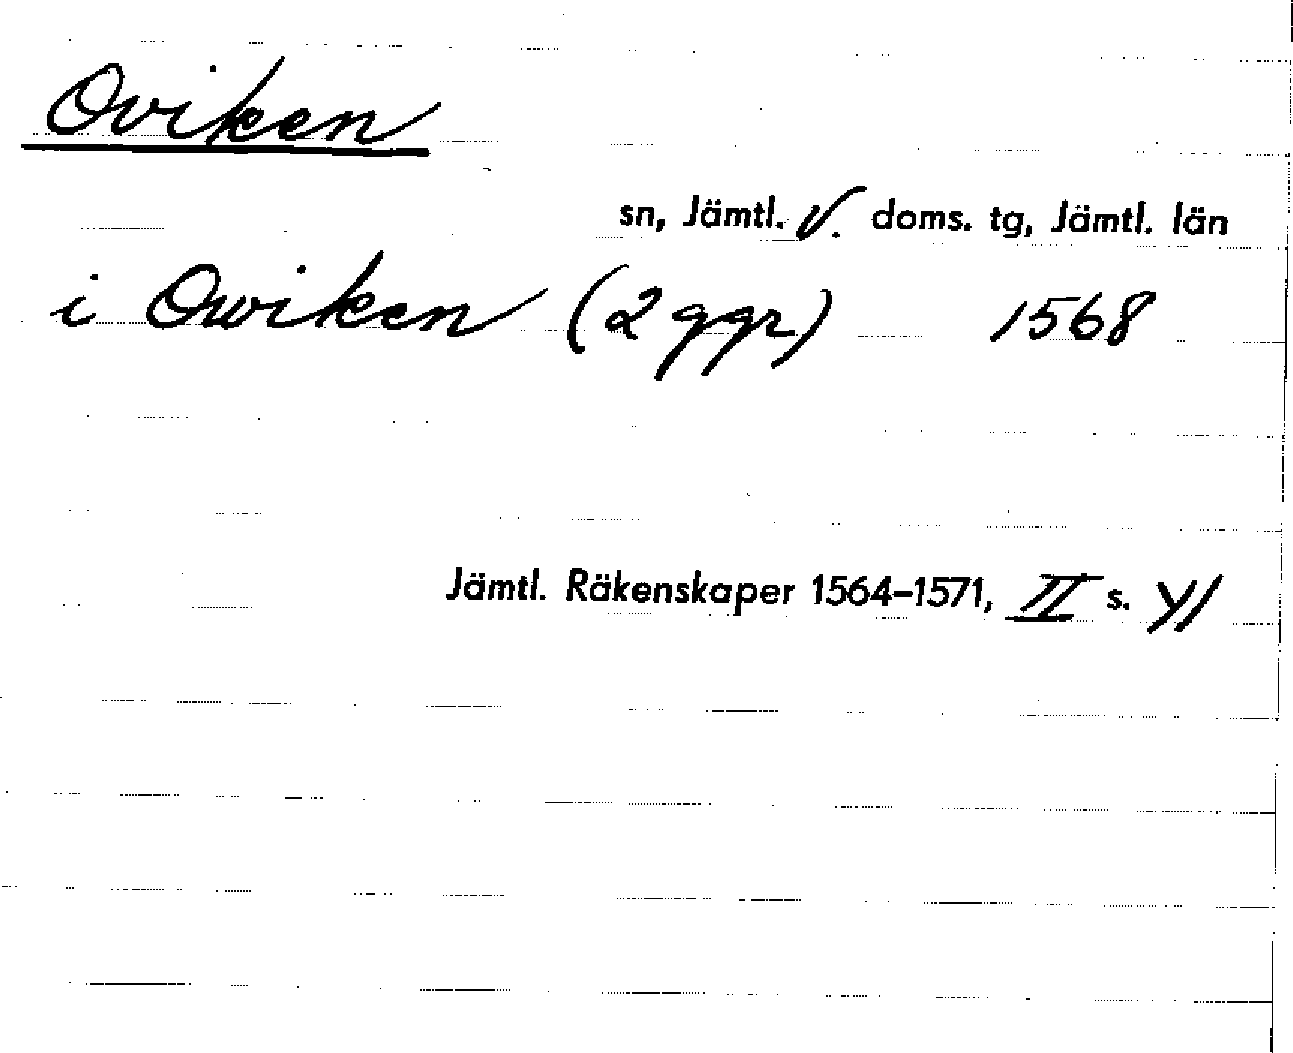 Oviken
sn, Jämtl. V. doms. tg, Jämtl. län
i Owiken (2 ggr) 1568
Jämtl. Räkenskaper 1564–1571, II s. VI